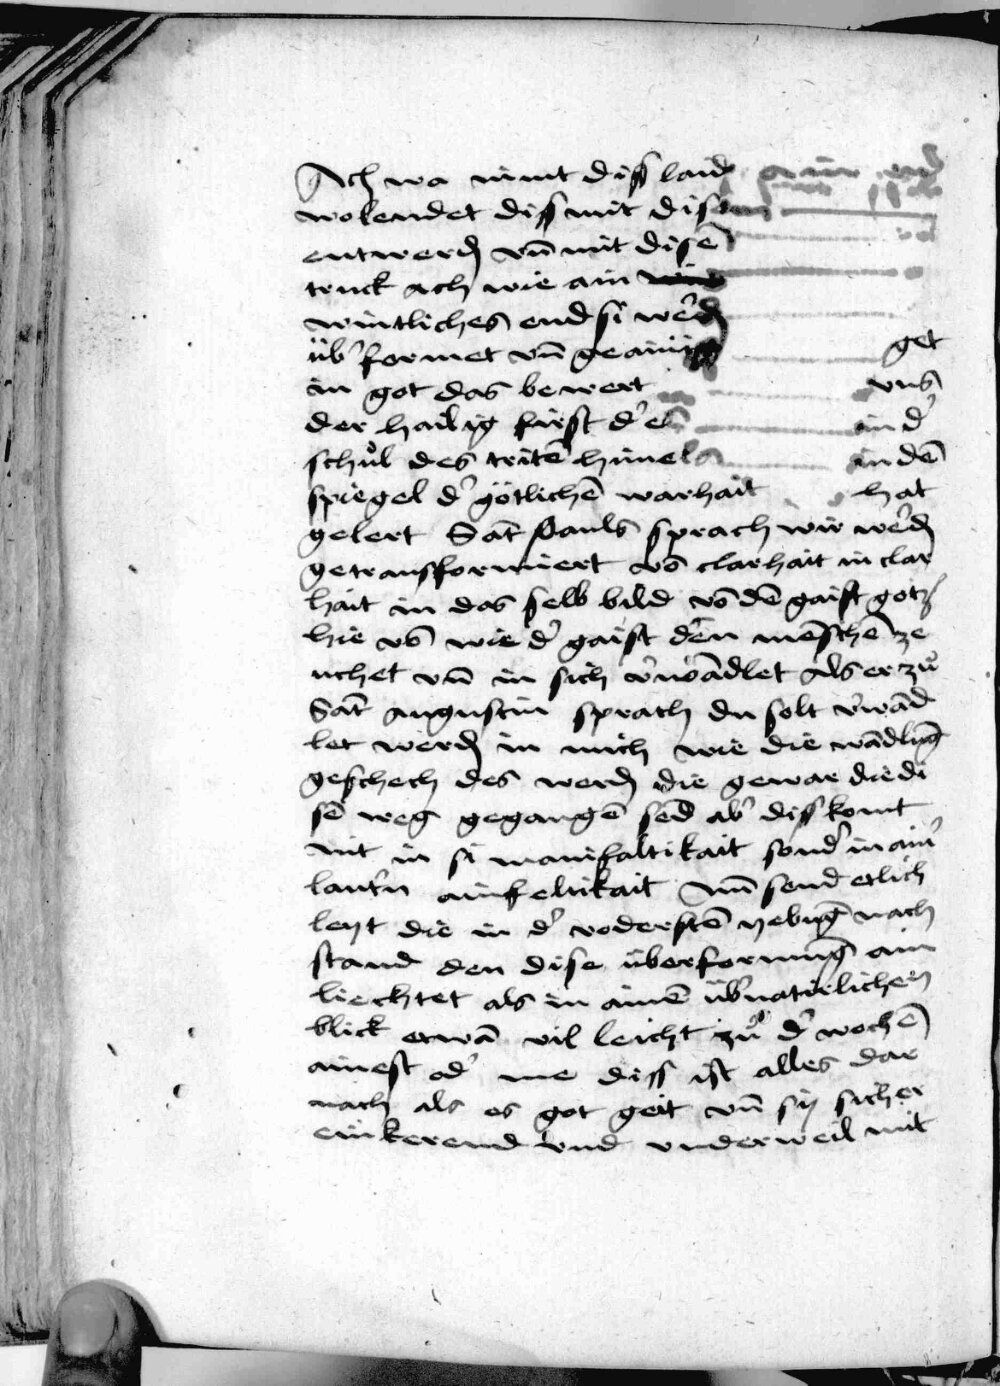 Ach wa nimt diss laid
volendet diss mit disem
entwerd vn̄ mit disē
truck ach wie ain
wintliches end si werd
üb' formet vn̄ geainig get
in got das bewert vns
der hailig first d' in d'
schůl des tritē himels in dē
spiegel d' götlichē warhait hat
gelert Sāt pauls sprach wir werd
getransformiert vō clarhait in clar
hait in das selb bild vō dē gaist gotz
hie vō wie d' gaist den mēschē ze
uchet vn̄ in sich v'wādlet als er zů
Sāt augustin sprach du solt v'wād
let werd in mich wie die wādlūg
geschech des werd die gewar die di
sē weg gegangē sēd ab' diss komt
nit in si manifaltikait sond' in ain'
laut'n ainfeltikait Nun send etlich
leyt die in d' vodersten yebūg nach
stand den dise überformūg ain
liechtet als in ainē üb'natirlichen
blick etwā vil leicht zů d' wochē
ainest od' me diss ist alles dar
nach als es got geit vn̄ sy sich er
einkerend vnd vnderweil mit